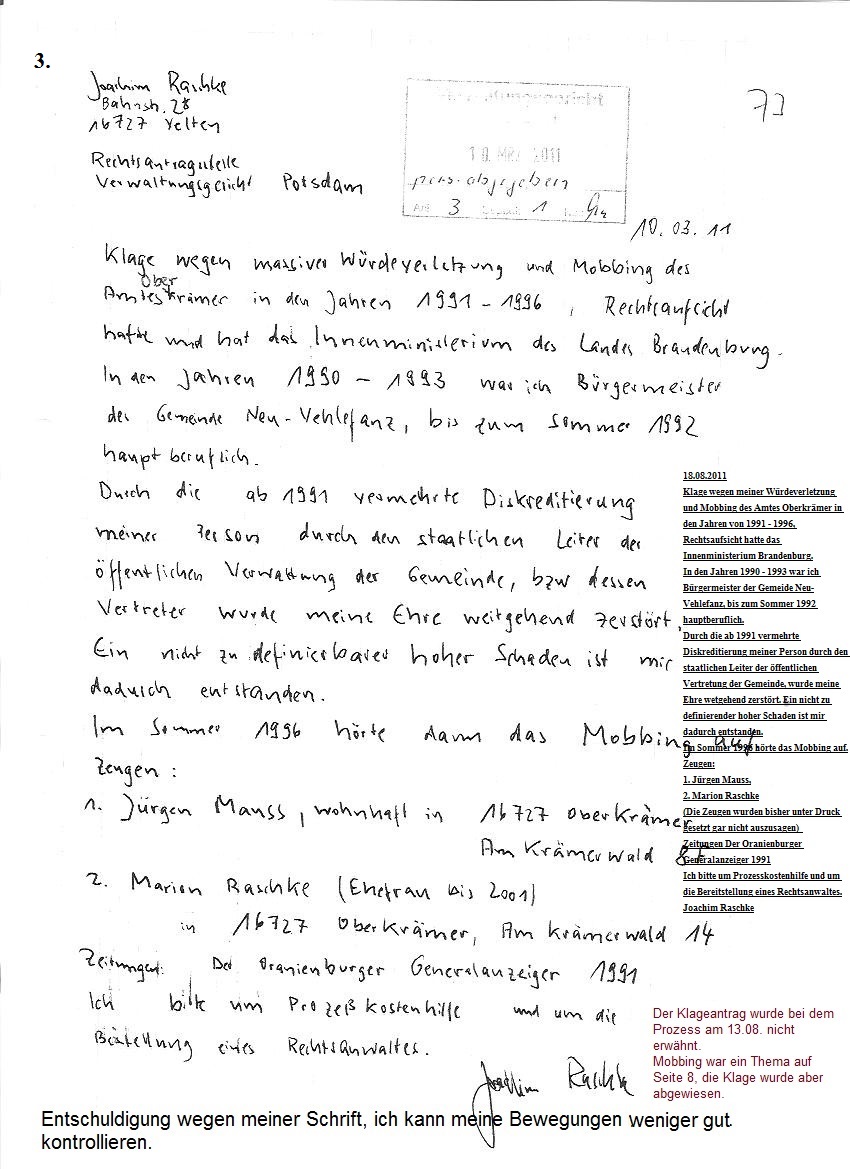 3.
Joachim Raschke
Bahnstr. 28
16727 Velten
73
Rechtsantragstelle
Verwaltungsgericht Potsdam
10. MRZ 2011
pers. abgegeben
3 1
10.03.11
Klage wegen massiver Würdeverletzung und Mobbing des
Ober
Amteskrämer in den Jahren 1991 - 1996, Rechtsaufsicht
hatte und hat das Innenministerium des Landes Brandenburg.
In den Jahren 1990 - 1993 war ich Bürgermeister
der Gemeinde Neu-Vehlefanz, bis zum Sommer 1992
hauptberuflich.
Durch die ab 1991 vermehrte Diskreditierung
meiner Person durch den staatlichen Leiter der
öffentlichen Verwaltung der Gemeinde, bzw dessen
Vertreter wurde meine Ehre weitgehend zerstört.
Ein nicht zu definierbarer hoher Schaden ist mir
dadurch entstanden.
Im Sommer 1996 hörte dann das Mobbing auf
Zeugen:
1. Jürgen Mauss, wohnhaft in 16727 Oberkrämer
Am Krämerwald
2. Marion Raschke (Ehefrau bis 2001)
in 16727 Oberkrämer, Am Krämerwald 14
Zeitungen: Der Oranienburger Generalanzeiger 1991
Ich bitte um Prozeßkostenhilfe und um die
Bestellung eines Rechtsanwaltes.
Joachim Raschke
18.08.2011
Klage wegen meiner Würdeverletzung
und Mobbing des Amtes Oberkrämer in
den Jahren von 1991 - 1996.
Rechtsaufsicht hatte das
Innenministerium Brandenburg.
In den Jahren 1990 - 1993 war ich
Bürgermeister der Gemeide Neu-
Vehlefanz, bis zum Sommer 1992
hauptberuflich.
Durch die ab 1991 vermehrte
Diskreditierung meiner Person durch den
staatlichen Leiter der öffentlichen
Vertretung der Gemeinde, wurde meine
Ehre wetgehend zerstört. Ein nicht zu
definierender hoher Schaden ist mir
dadurch entstanden.
Im Sommer 1996 hörte das Mobbing auf.
Zeugen:
1. Jürgen Mauss,
2. Marion Raschke
(Die Zeugen wurden bisher unter Druck
gesetzt gar nicht auszusagen)
Zeitungen Der Oranienburger
Generalanzeiger 1991
Ich bitte um Prozesskostenhilfe und um
die Bereitstellung eines Rechtsanwaltes.
Joachim Raschke
Der Klageantrag wurde bei dem
Prozess am 13.08. nicht
erwähnt.
Mobbing war ein Thema auf
Seite 8, die Klage wurde aber
abgewiesen.
Entschuldigung wegen meiner Schrift, ich kann meine Bewegungen weniger gut
kontrollieren.